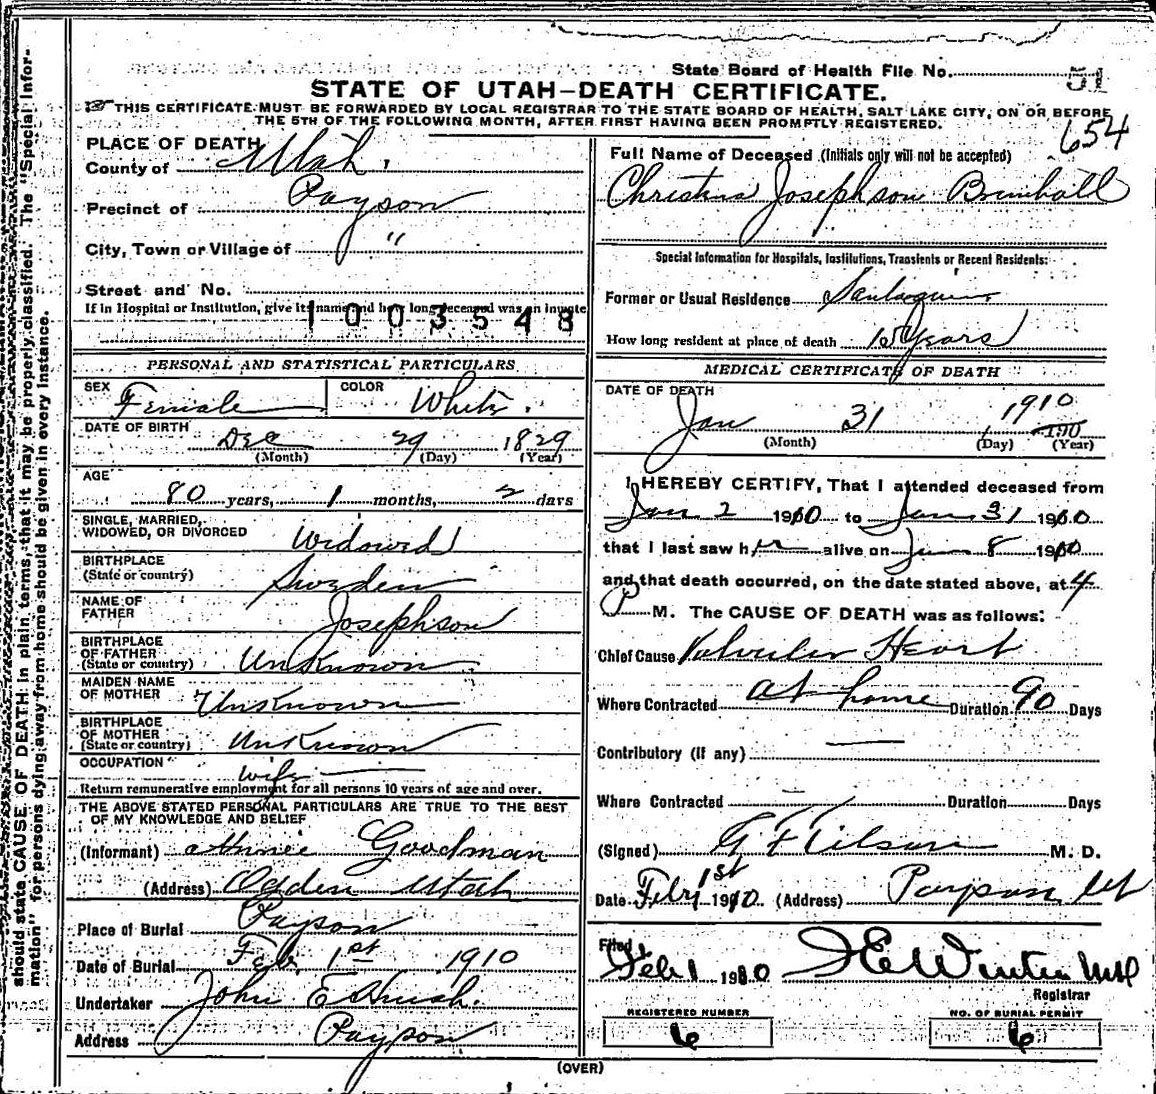 State Board of Health File No. 51
STATE OF UTAH—DEATH CERTIFICATE.
THIS CERTIFICATE MUST BE FORWARDED BY LOCAL REGISTRAR TO THE STATE BOARD OF HEALTH, SALT LAKE CITY, ON OR BEFORE
THE 5TH OF THE FOLLOWING MONTH, AFTER FIRST HAVING BEEN PROMPTLY REGISTERED.
654
PLACE OF DEATH
County of Utah.
Precinct of Payson
City, Town or Village of "
Street and No.
If in Hospital or Institution, give its name and how long deceased was an inmate
1003548
PERSONAL AND STATISTICAL PARTICULARS
SEX Female COLOR White.
DATE OF BIRTH Dec 29 1829
(Month) (Day) (Year)
AGE
80 years, 1 months, 2 days
SINGLE, MARRIED,
WIDOWED, OR DIVORCED Widowed
BIRTHPLACE
(State or country) Sweden
NAME OF
FATHER Josephson
BIRTHPLACE
OF FATHER
(State or country) Unknown
MAIDEN NAME
OF MOTHER Unknown
BIRTHPLACE
OF MOTHER
(State or country) Unknown
OCCUPATION wife
Return remunerative employment for all persons 10 years of age and over.
THE ABOVE STATED PERSONAL PARTICULARS ARE TRUE TO THE BEST
OF MY KNOWLEDGE AND BELIEF
(Informant) Annie Goodman
(Address) Ogden Utah
Place of Burial Payson
Date of Burial Feb. 1st 1910
Undertaker John E
Address Payson
Full Name of Deceased (Initials only will not be accepted)
Christina Josephson Brimhall
Special Information for Hospitals, Institutions, Transients or Recent Residents:
Former or Usual Residence Santaquin
How long resident at place of death Years
MEDICAL CERTIFICATE OF DEATH
DATE OF DEATH
Jan 31 1910
190
(Month) (Day) (Year)
I HEREBY CERTIFY, That I attended deceased from
Jan 2 1910 to Jan 31 1910
that I last saw her alive on Jan 8 1910
and that death occurred, on the date stated above, at 4
P M. The CAUSE OF DEATH was as follows:
Chief Cause Valvular Heart
Where Contracted at home Duration 90 Days
Contributory (if any)
Where Contracted Duration Days
(Signed) M. D.
Date Feby 1st 1910 (Address) Payson, Ut
Filed Feb 1 1910 Winter MD
Registrar
REGISTERED NUMBER
6
NO. OF BURIAL PERMIT
6
(OVER)
should state CAUSE OF DEATH in plain terms that it may be properly classified. The "Special Infor-
mation" for persons dying away from home should be given in every instance.